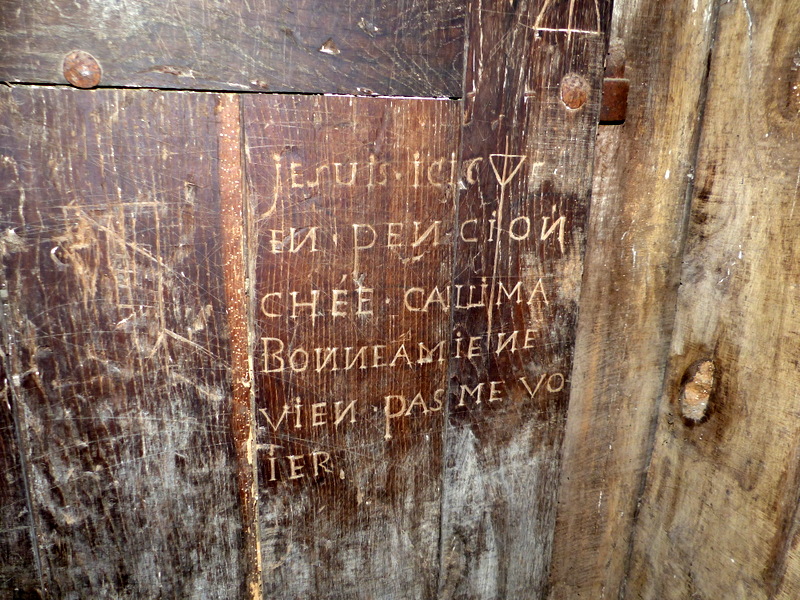 JESUIS·ICI
EN·PENCION
CHÉE·CAUMA
BONNEAMIENE
VIEN·PAS ME VO
IER.